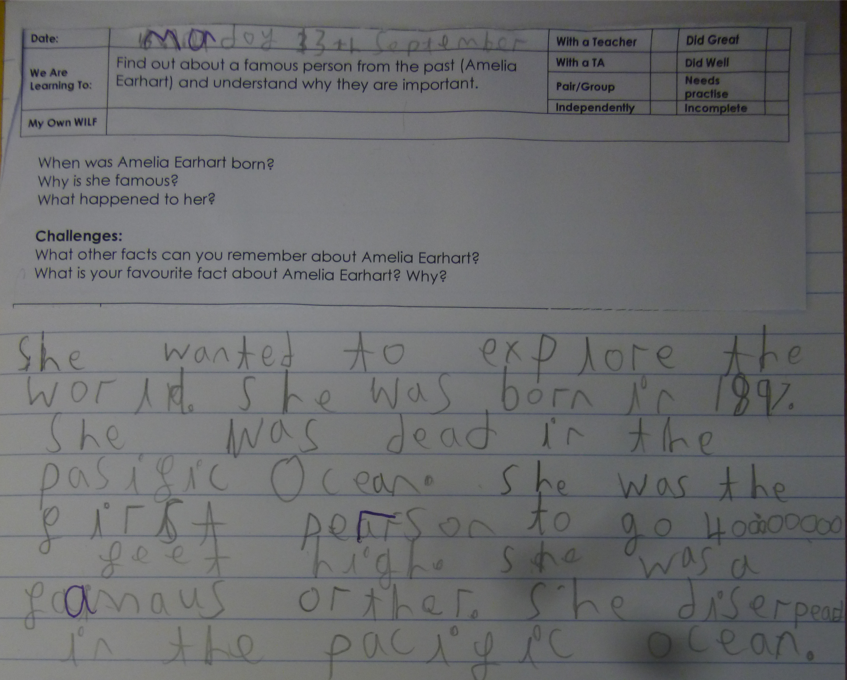 Date: Monday 13th September
With a Teacher Did Great
We Are Learning To:
Find out about a famous person from the past (Amelia
Earhart) and understand why they are important.
With a TA Did Well
Pair/Group Needs practise
Independently Incomplete
My Own WILF
When was Amelia Earhart born?
Why is she famous?
What happened to her?
Challenges:
What other facts can you remember about Amelia Earhart?
What is your favourite fact about Amelia Earhart? Why?
She wanted to explore the
world. She was born in 1897.
She was dead in the
pasific Ocean. She was the
first pearson to go
feet high. She was a
famaus orther. She diserpead
in the pacific ocean.